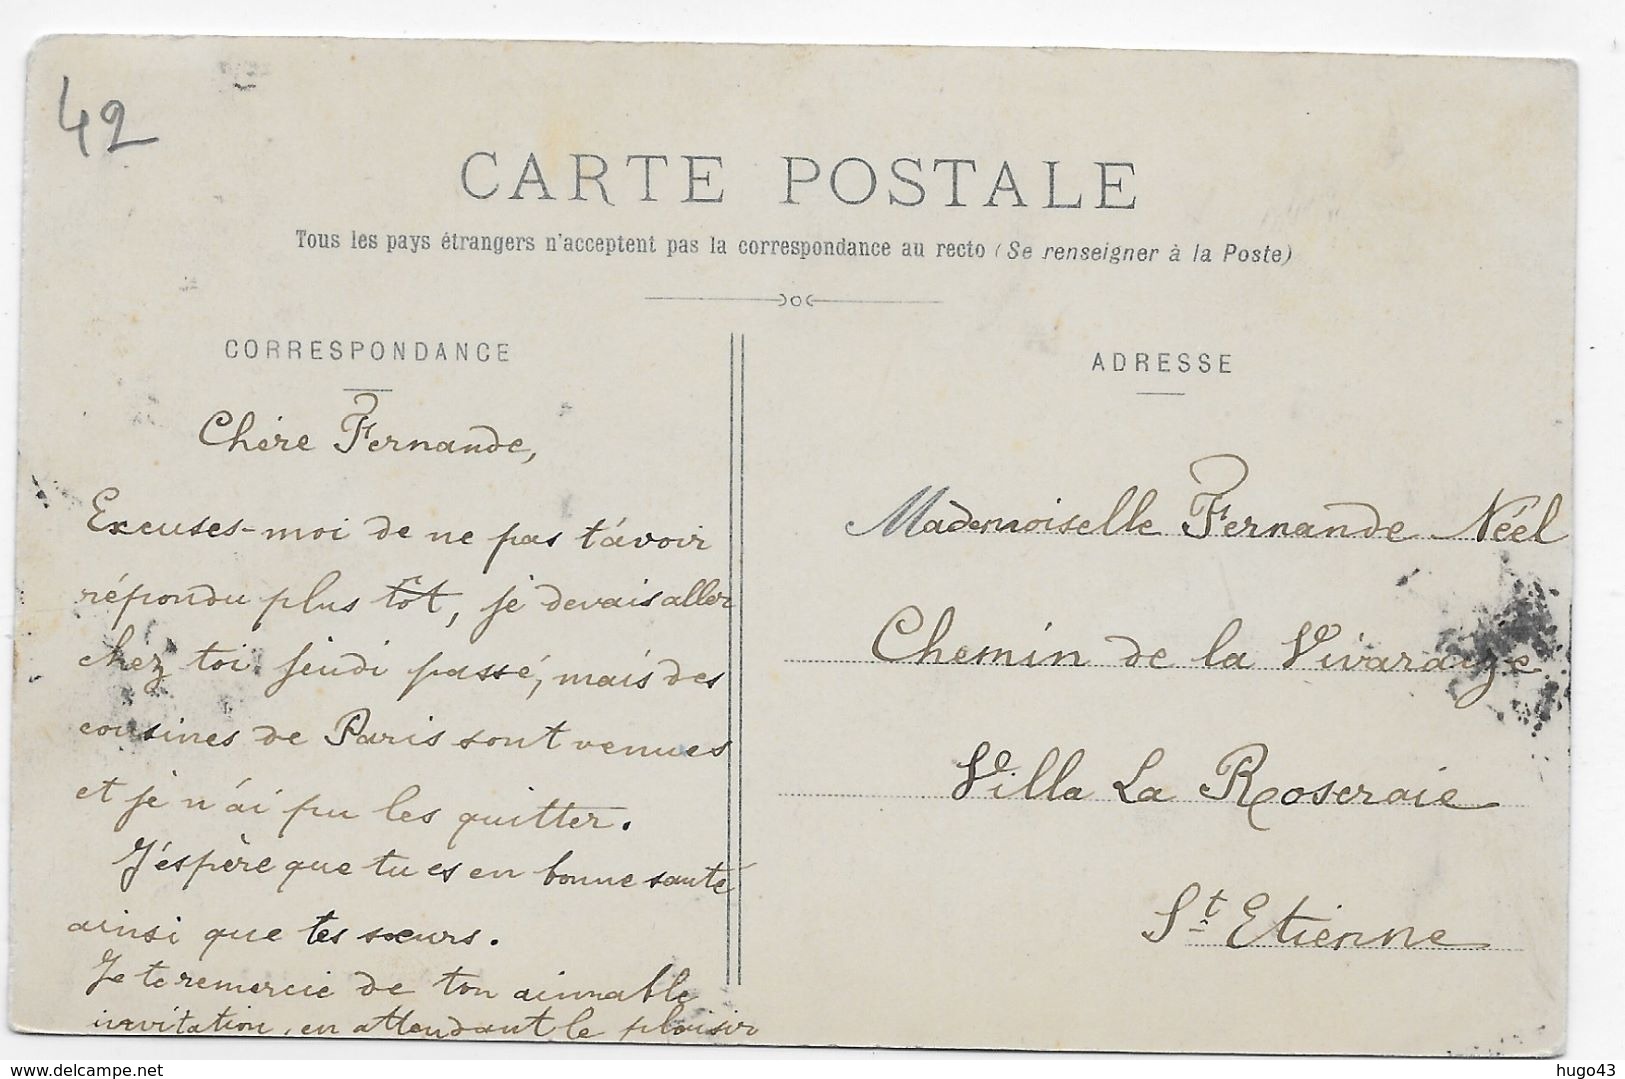 42
CARTE POSTALE
Tous les pays étrangers n'acceptent pas la correspondance au recto (Se renseigner à la Poste)
CORRESPONDANCE
Chère Fernande,
Excuses-moi de ne pas t'avoir
répondu plus tôt, je devais aller
chez toi jeudi passé, mais des
cousines de Paris sont venues
et je n'ai pu les quitter.
J'éspère que tu es en bonne santé
ainsi que tes sœurs.
Je te remercie de ton aimable
invitation, en attendant le plaisir
ADRESSE
Mademoiselle Fernande Néel
Chemin de la Vivaraize
Villa La Roseraie
St Etienne
delcampe.net
hugo43